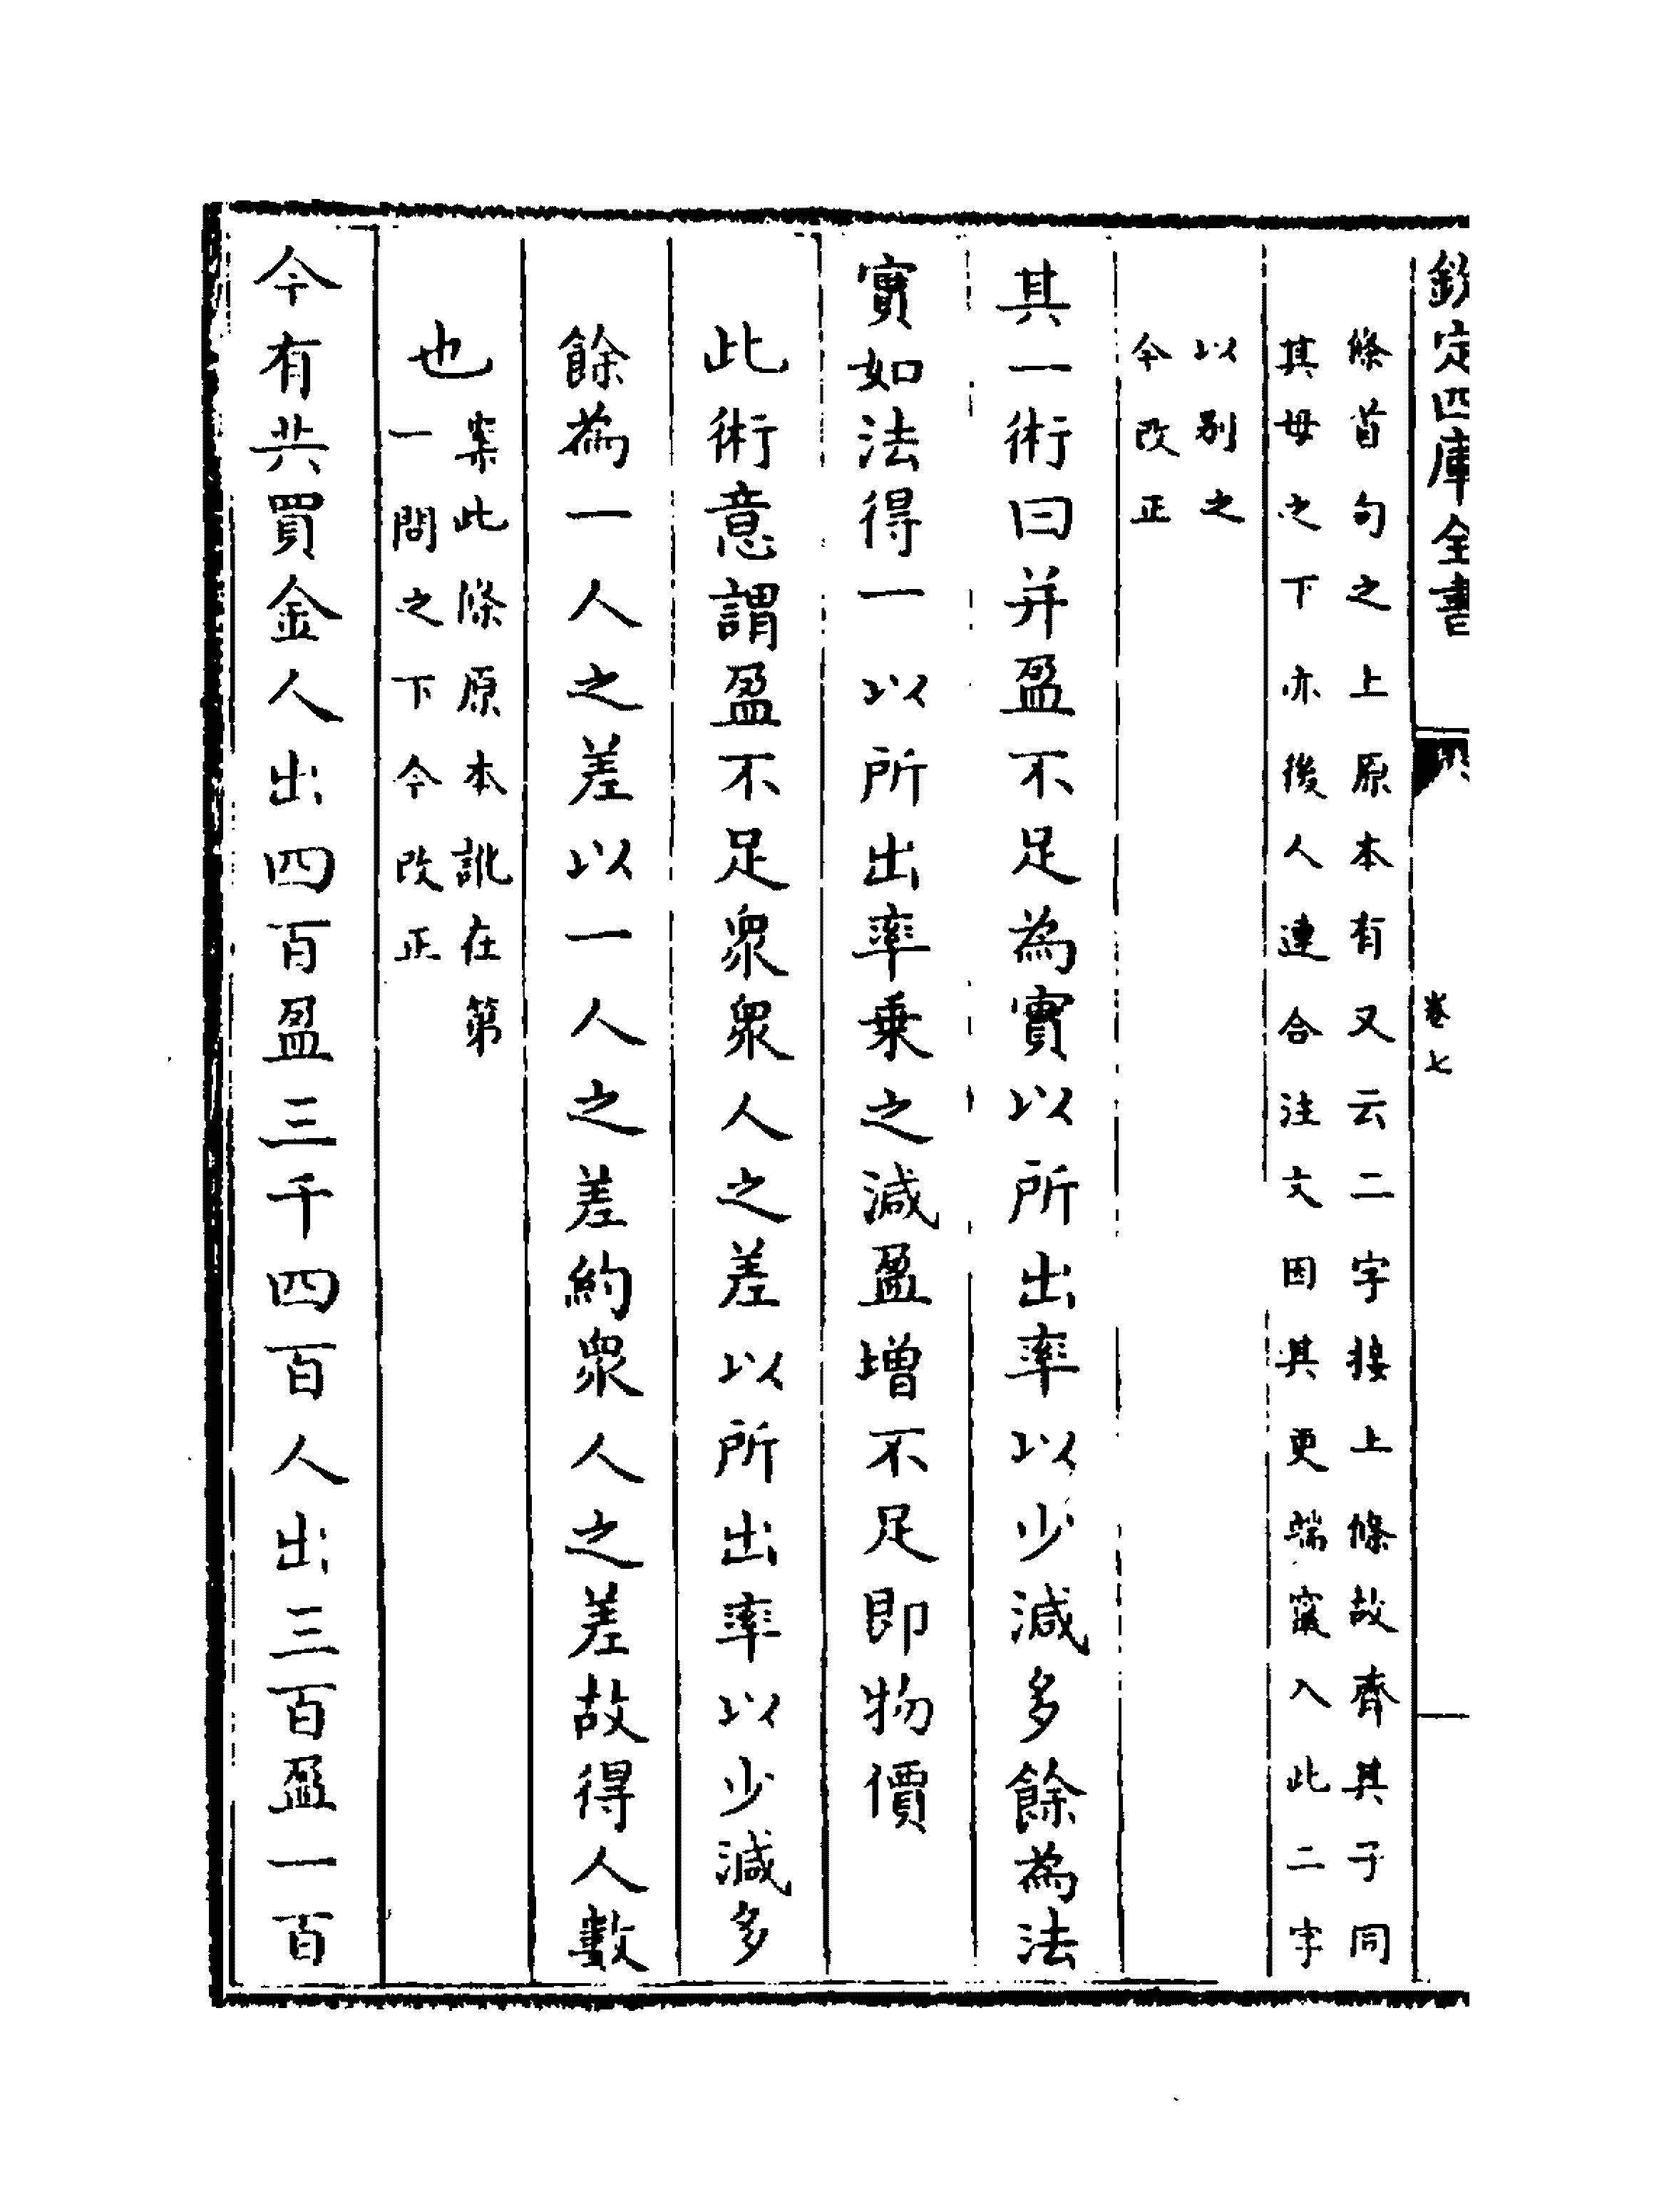 欽定四庫全書
卷七
條首句之上原本有又云二字接上條故齊其子同
其母之下亦後人連合注文因其更端竄入此二字
以别之
今改正
其一術曰并盈不足為實以所出率以少減多餘為法
實如法得一以所出率乗之減盈增不足即物價
此術意謂盈不足衆衆人之差以所出率以少減多
餘為一人之差以一人之差約衆人之差故得人數
也
案此條原本訛在第
一問之下今改正
今有共買金人出四百盈三千四百人出三百盈一百